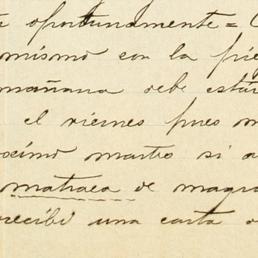 oportunamente = 
mismo con la pie
mañana debe estar
el viernes pues m
oximo martes si a
matraca de magna
recibi una carta